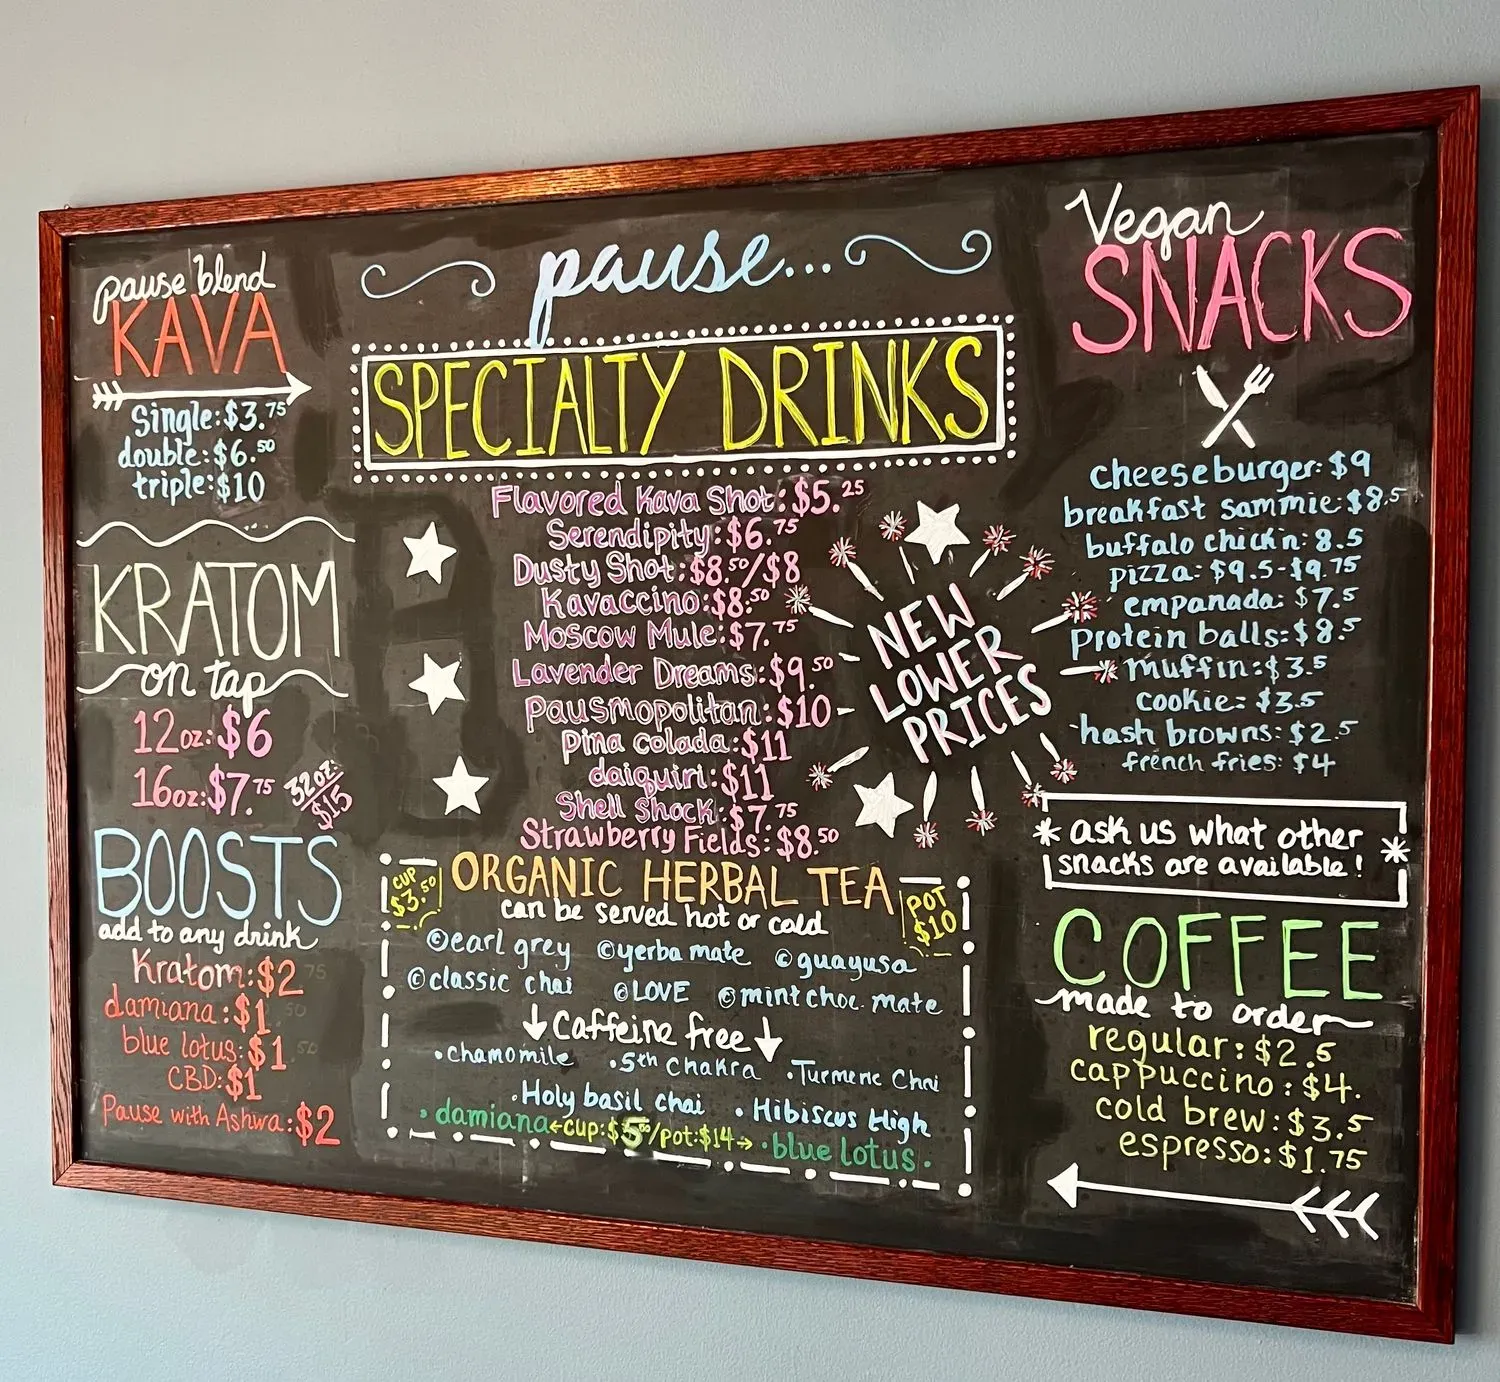 pause blend
KAVA
Single: $3.75
double: $6.50
triple: $10
KRATOM
on tap
12oz: $6
16oz: $7.75
32oz: $15
BOOSTS
add to any drink
Kratom: $2
damiana: $1
blue lotus: $1
CBD: $1
Pause with Ashwa: $2
pause...
SPECIALTY DRINKS
Flavored Kava Shot: $5.25
Serendipity: $6.75
Dusty Shot: $8.50/$8
Kavaccino: $8.50
Moscow Mule: $7.75
Lavender Dreams: $9.50
Pausmopolitan: $10
pina colada: $11
daiquiri: $11
Shell Shock: $7.75
Strawberry Fields: $8.50
NEW
LOWER
PRICES
CUP
$3.50
ORGANIC HERBAL TEA
POT
$10
can be served hot or cold
©earl grey ©yerba mate ©guayusa
©classic chai ©LOVE ©mint choc. mate
↓Caffeine free↓
•chamomile •5th Chakra •Turmeric Chai
•Holy basil chai •Hibiscus High
•damiana←cup:$5/pot:$14→•blue lotus•
Vegan
SNACKS
cheeseburger: $9
breakfast sammie: $8.5
buffalo chick'n: 8.5
pizza: $9.5-$9.75
empanada: $7.5
protein balls: $8.5
muffin: $3.5
cookie: $3.5
hash browns: $2.5
french fries: $4
* ask us what other *
snacks are available!
COFFEE
made to order
regular: $2.5
cappuccino: $4.
cold brew: $3.5
espresso: $1.75